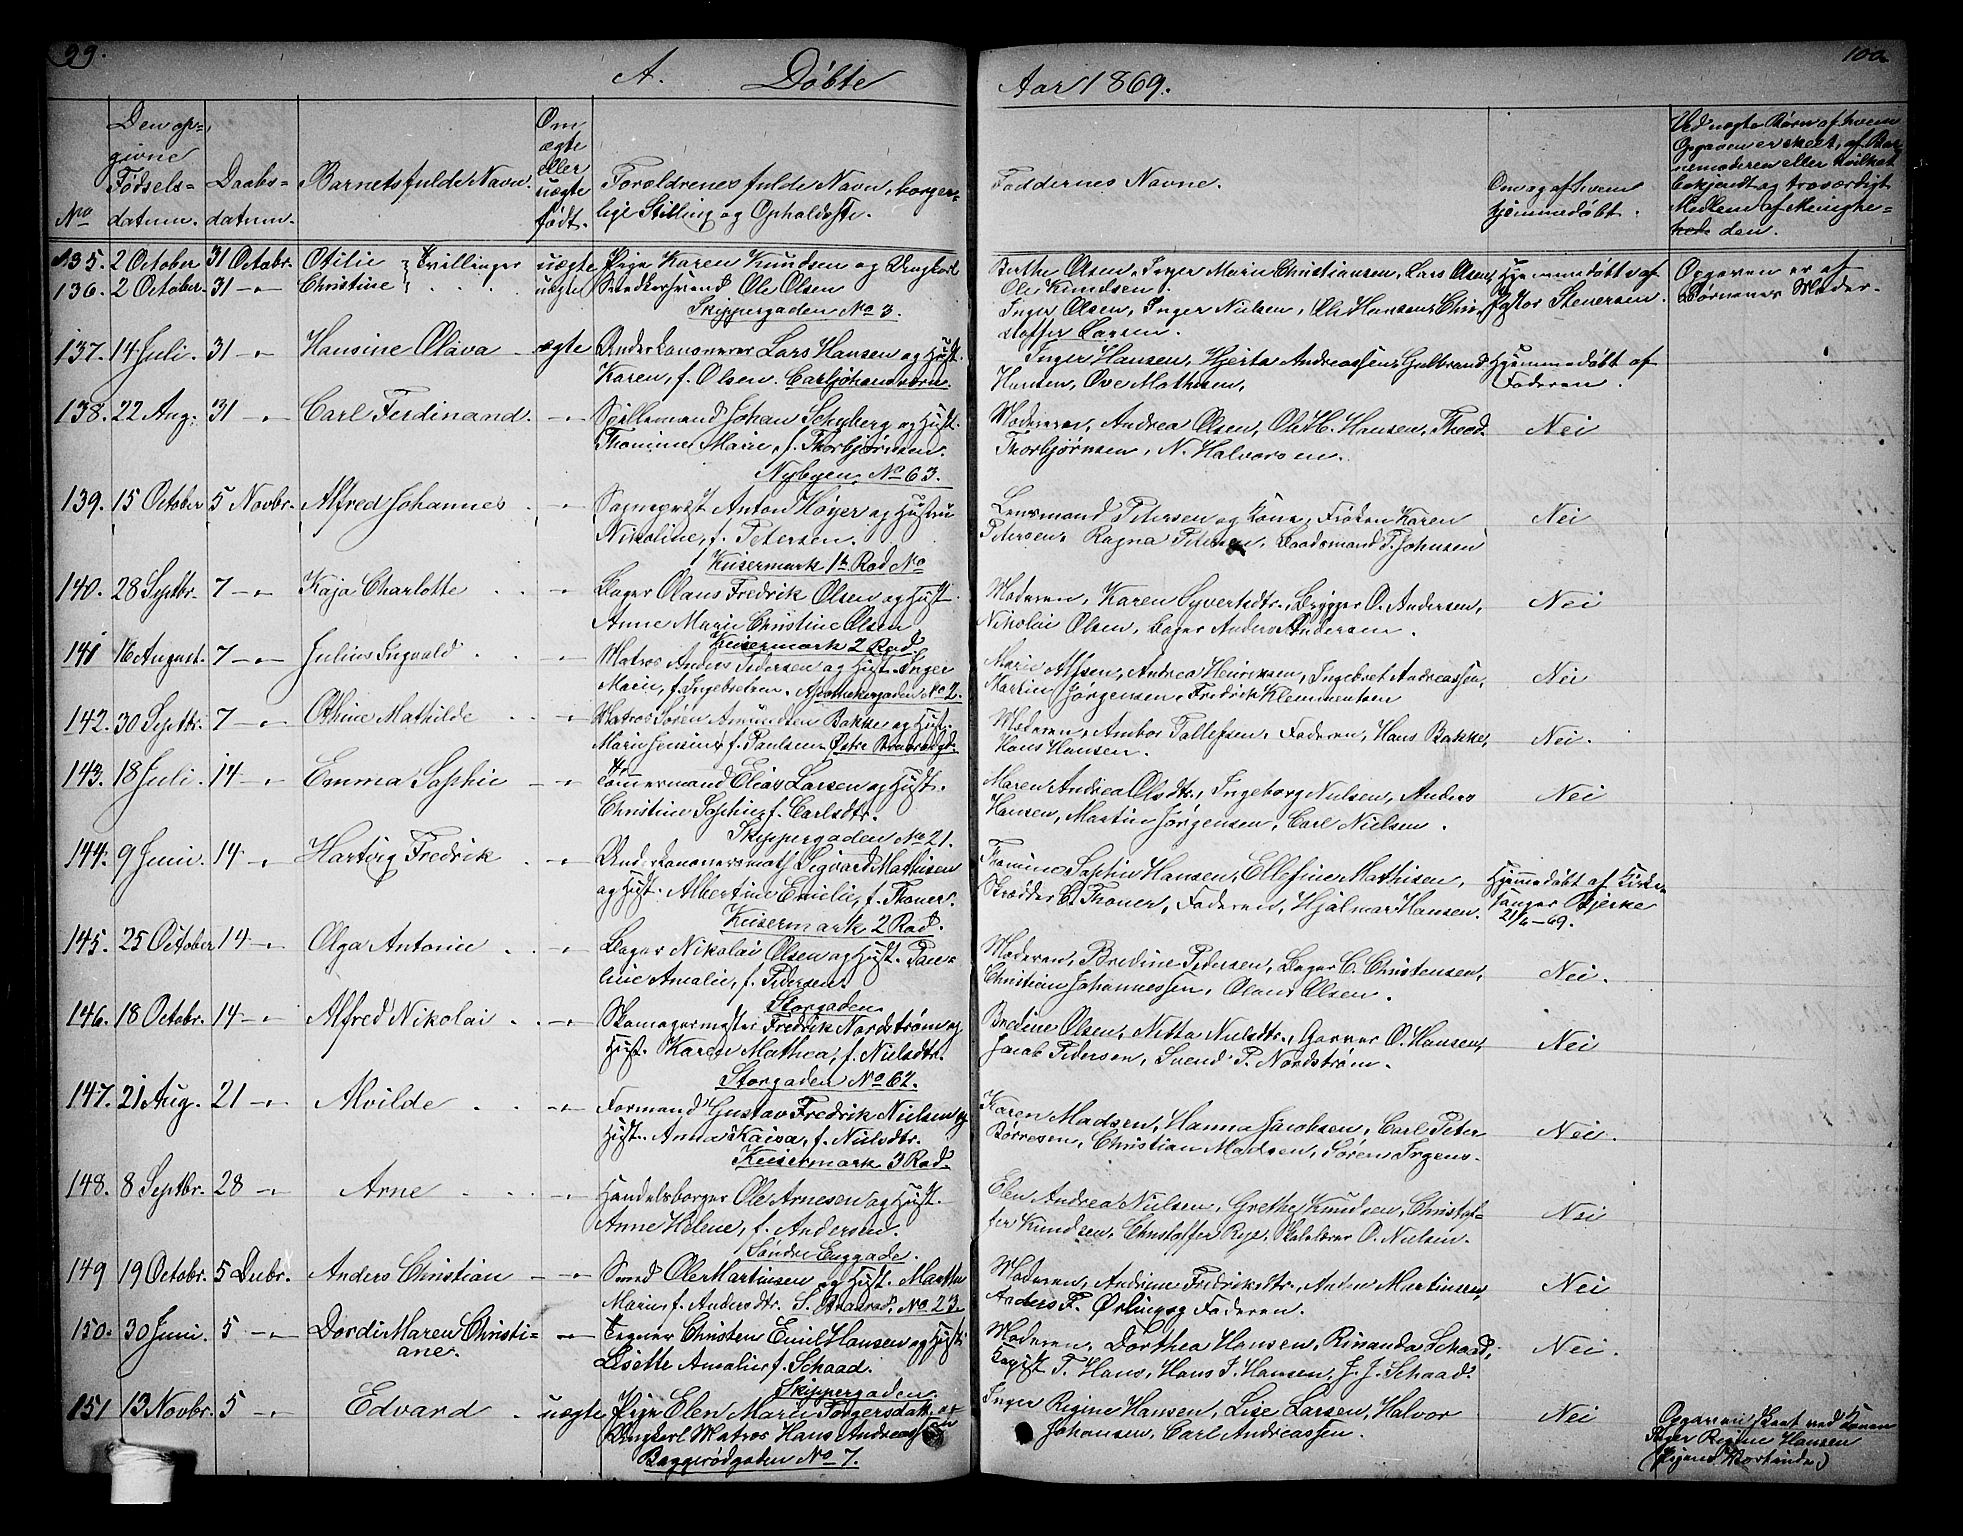 99.
A. Døbte
Aar 1869.
100
No
Den op=
givne
Fødsels=
datum.
Daabs=
datum.
Barnets fulde Navn.
Om
ægte
eller
uægte
født.
Forældrenes fulde Navn, borger=
lige Stilling og Opholdsste.
Faddernes Navne.
Om og af hvem
hjemmedøbt.
Ved uægte Børn af hvem
Opgaven er skeet, af Bar=
nemoderen eller hvilket
bekjendt og troværdigt
Medlem af Menighe=
den.
135. 2 October 31 Octobr. Otilie } Tvillinger uægte Pige Karen Knudsen og Ungkarl
136. 2 October. 31 -"- Christine } uægte Snedkersvend Ole Olsen
Skippergaden No 3.
Berthe Olsen, Inger Marie Christiansen, Lars Olsen,
Ole Knudsen.
Inger Olsen, Inger Nielsen, Ole Hansen, Chri-
stoffer Larsen.
Hjemmedøbte af
Pastor Stenersen.
Opgaven er af
Børnenes Moder.
137. 14 Juli. 31 -"- Hansine Olava ægte Underkanoneer Lars Hansen og Hust.
Karen, f. Olsen. Carljohansværn.
Inger Hansen, Hjerta Andreassen, Gulbrand
Hansen, Ove Mathisen,
Hjemmedøbt af
Faderen.
138. 22 Aug. 31 -"- Carl Ferdinand. -"- Spillemand Johan Schyberg og Hust.
Thomine Marie, f. Thorbjørnsen.
Nybyen No 63.
Moderen, Andrea Olsen, Ole H. Hansen, Theod.
Thorbjørnsen, N. Halvorsen.
Nei
139. 15 October 5 Novbr. Alfred Johannes -"- Sogneprest Anton Høyer og Hustru
Nikoline, f. Petersen.
Keisermark 1ste Rad No
Lensmand Petersen og Kone, Frøken Karen
Petersen, Ragna Petersen, Baadsmand P. Johnsen
Nei
140. 28 Septbr. 7 -"- Kaja Charlotte -"- Bager Olaus Fredrik Olsen og Hust.
Anne Marie Christine Olsen
Keisermark 2 Rad.
Moderen, Karen Syvertsdtr., Brygger O. Andersen,
Nikolai Olsen, Bager Anders Andersen.
Nei
141 16 August. 7 -"- Julius Ingvald -"- Matros Anders Pedersen og Hust. Inger
Marie, f. Ingebretsen. Apothekergaden No 2.
Marie Alfsen, Andrea Henriksen, Ingebret Andreassen,
Martin Jørgensen, Fredrik Klemmentsen
Nei
142. 30 Septbr. 7 -"- Othine Mathilde -"- Matros Søren Amundsen Bakke og Hust.
Marie Jensine, f. Paulsen. Østre
Moderen, Ambor Tollefsen, Faderen, Hans Bakke,
Hans Hansen.
Nei.
143. 18 Juli. 14 -"- Emma Sophie -"- Tømmermand Elias Larsen og Hust.
Christine Sophie, f. Carlsdtr.
Skippergaden No 21.
Maren Andrea Olsdtr., Ingeborg Nielsen, Anders
Hansen, Martin Jørgensen, Carl Nielsen.
Nei
144. 9 Juni. 14 -"- Hartvig Fredrik -"- Underkanoneersmath Sigvard Mathisen
og Hust. Albertine Emilie, f. Thoner.
Keisermark 2 Rad.
Thomine Sophie Hansen, Ellefine Mathisen,
Skrædder C. Thoner, Faderen, Hjalmar Hansen.
Hjemmedøbt af Kirke-
sanger Bjerke
21/6-69.
145. 25 October 14 -"- Olga Antonie -"- Bager Nikolai Olsen og Hust. Pau=
line Amalie, f. Pedersen.
Storgaden
Moderen, Bredine Pedersen, Bager C. Christensen,
Christian Johannessen, Olaus Olsen.
Nei.
146. 18 Octobr. 14 -"- Alfred Nikolai -"- Skomagermester Fredrik Nordstrøm og
Hust. Karen Mathea, f. Nielsdtr.
Storgaden No 62.
Bredine Olsen, Nitta Nielsdtr., Garver O. Hansen,
Jacob Pedersen, Svend P. Nordstrøm.
Nei
147. 21 Aug. 21 -"- Alvilde -"- Formand Gustav Fredrik Nielsen og
Hust. Anna Kaisa, f. Nielsdtr.
Keisermark 3 Rad.
Karen Madsen, Hanna Jacobsen, Carl Peter
Børresen, Christian Madsen, Søren Irgens.
Nei.
148. 8 Septbr. 28 -"- Arne -"- Handelsborger Ole Arnesen og Hust.
Anne Helene, f. Andersen.
Søndre Enggade.
Elen Andrea Nielsen, Grethe Knudsen, Christof=
fer Knudsen, Christoffer Rye, Skolelærer O. Nielsen.
Nei
149 19 Octobr. 5 Decbr. Anders Christian -"- Smed Ole Martinsen og Hust. Marthe
Marie, f. Andersdtr. S. No 23.
Moderen, Andrine Fredriksdtr., Anton Martinsen,
Anders F. Ørling og Faderen.
Nei
150. 30 Juni. 5 -"- Dordi Maren Christi= -"- Tegner Christen Emil Hansen og Hust.
ane. Lisette Amalie f. Schaad.
Skippergaden.
Moderen, Dorthea Hansen, Rinanda Schaad,
T. Hans, Hans J. Hansen, J. J. Schaad.
Nei.
151 13 Novbr. 5 -"- Edvard uægte Pige Elen Marie Torgersdatter og
Ungkarl Matros Hans Andreassen
Baggerødgaden No 7.
Inger Regine Hansen, Lise Larsen, Halvor
Johansen, Carl Andreassen.
Nei
Opgaven skeet ved Konen
Inger Regine Hansen
(Pigens Værtinde)